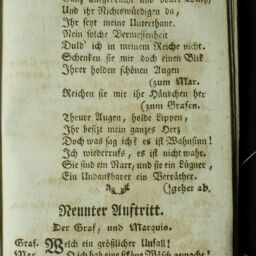 Ganz aufgebracht und voller Wuth,
Und ihr Nichtswürdigen da,
Ihr seyt meine Unterthane.
Nein solche Vermessenheit
Duld' ich in meinem Reiche nicht.
Schenken sie mir doch einen Blik
Ihrer holden schönen Augen
(zum Mar.
Reichen sie mir ihr Händchen her
(zum Grafen.
Theure Augen, holde Lippen,
Ihr besizt mein ganzes Herz
Doch was sag ich? es ist Wahnsinn!
Ich wiederrufs, es ist nicht wahr.
Sie sind ein Narr, und sie ein Lügner,
Ein Undankbarer ein Verräther.
(geher ab.
Neunter Auftritt.
Der Graf, und Marquis.
Graf. Welch ein gräßlicher Unfall!
Mar. O ich hab eine schöne gemacht!